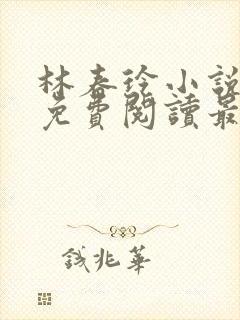 林春徐小說
免費閱讀最
錢兆華